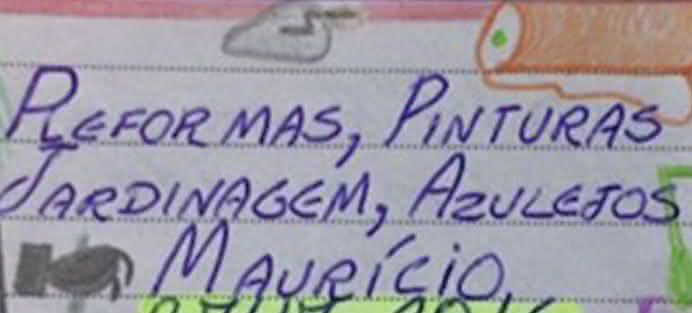 REFORMAS, PINTURAS
JARDINAGEM, AZULEJOS
MAURÍCIO